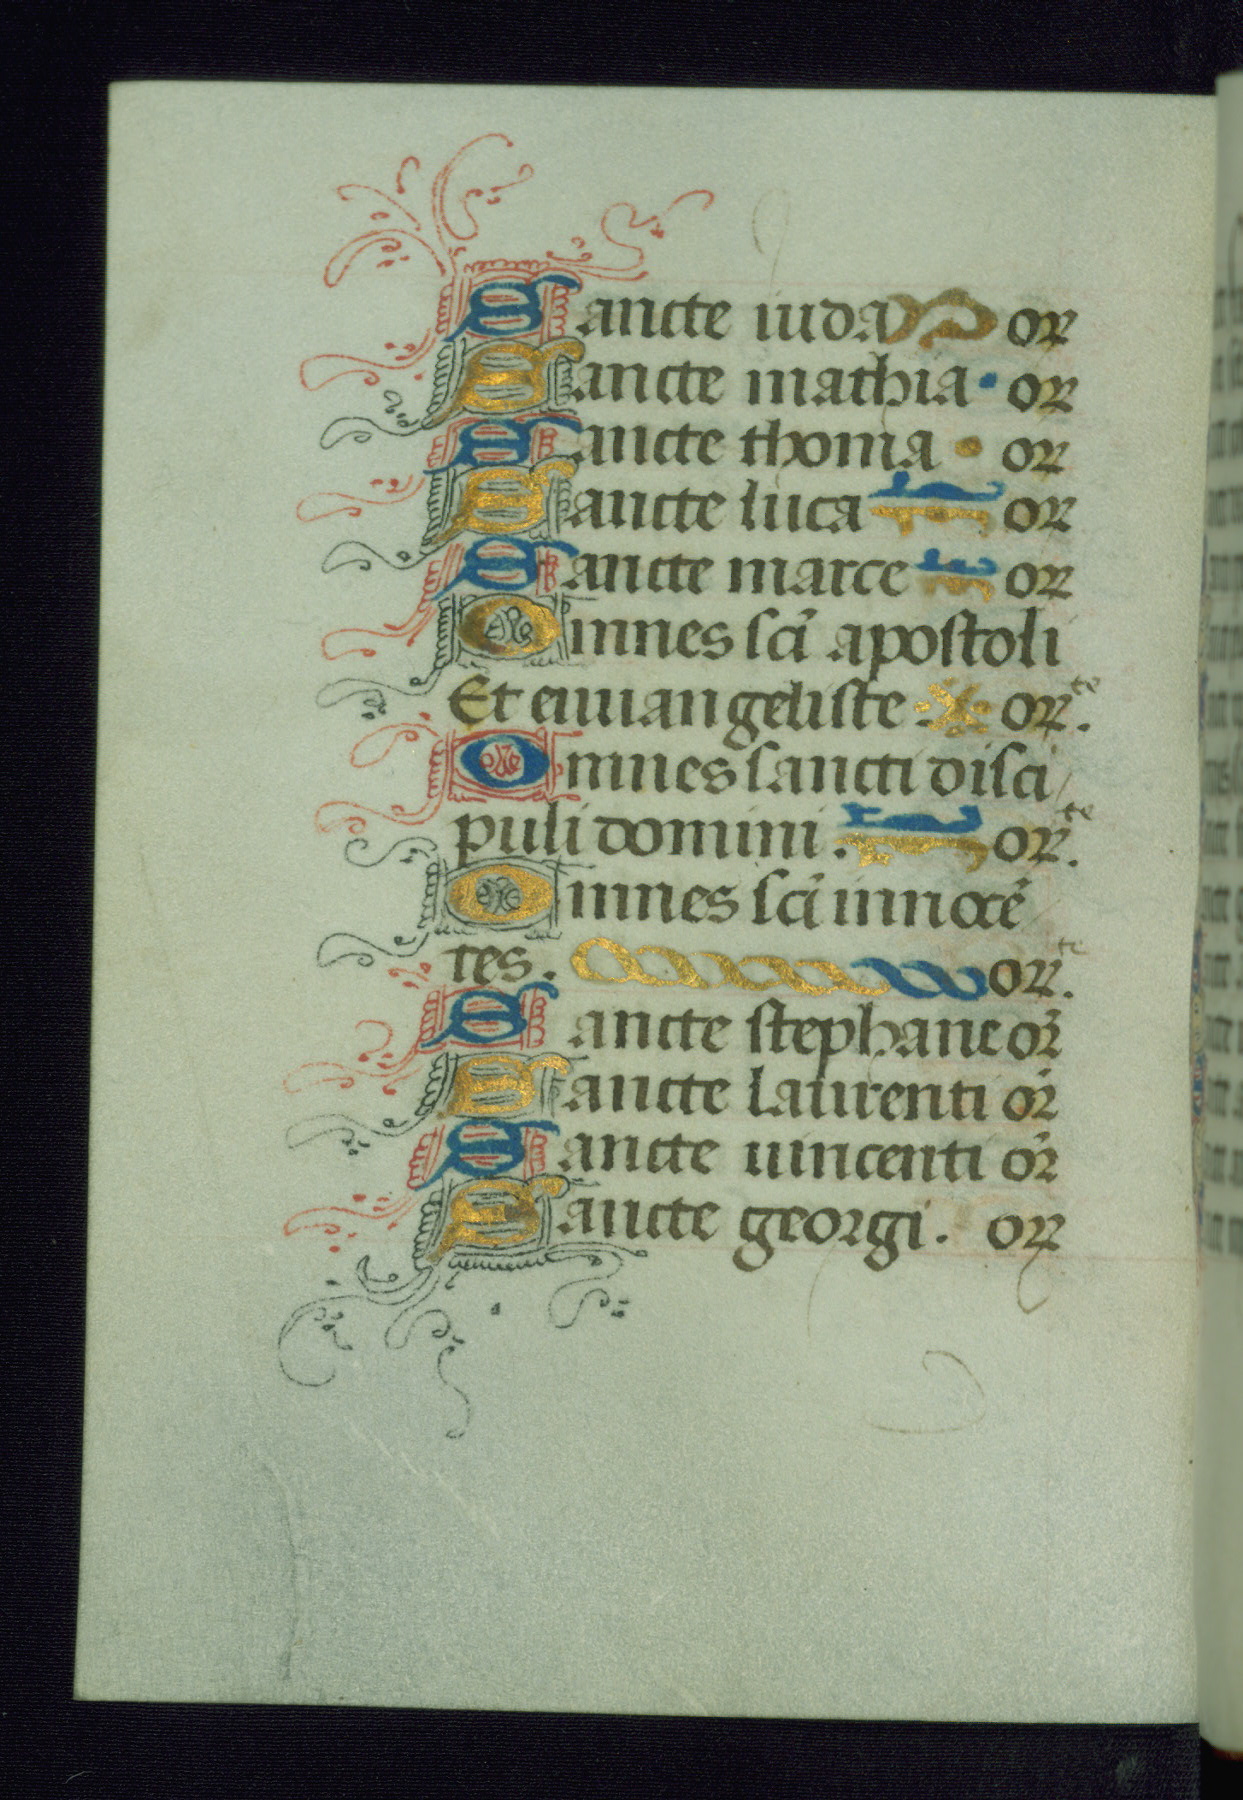 Sancte iuda or
Sancte mathia · or
Sancte thoma · or
Sancte luca or
Sancte marce or
Omnes sci̅ apostoli
Et euuangeliste . or.te
Omnes sancti disci
puli domini . or.te
Omnes sci̅ innoce̅
tes. or.te
Sancte stephane or̅
Sancte laurenti or̅
Sancte uincenti or̅
Sancte georgi. or